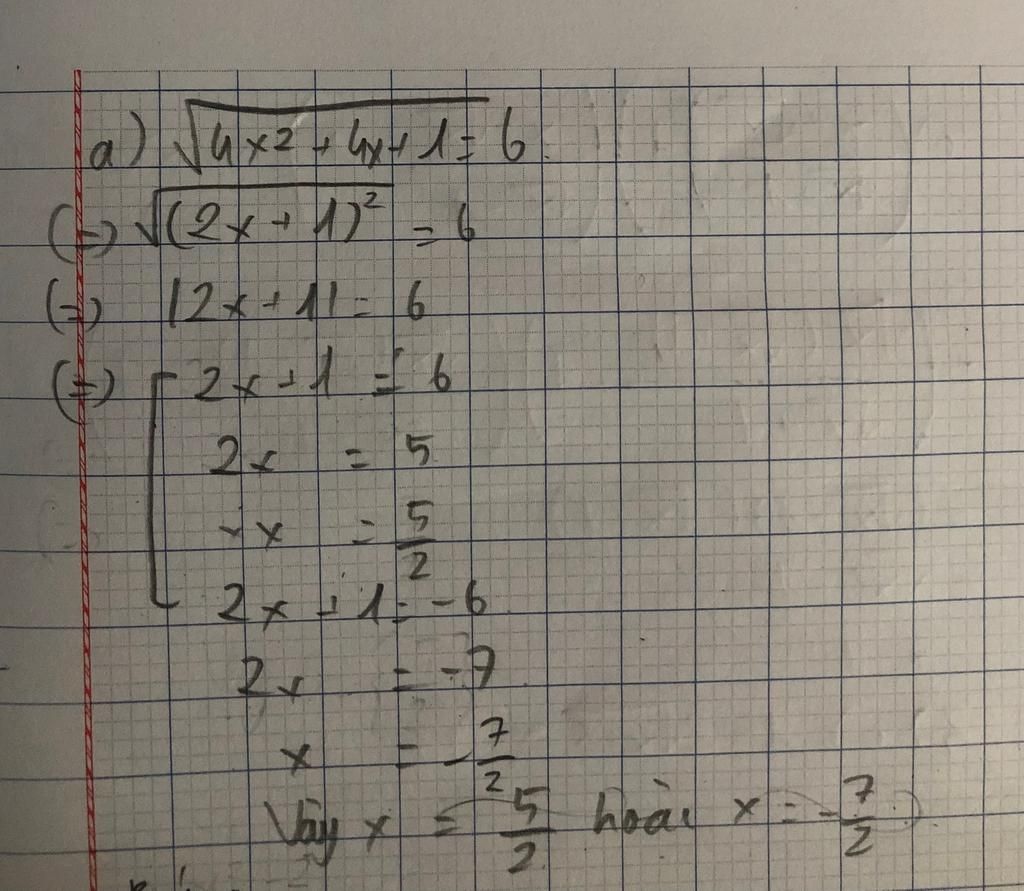 a) √4x2 + 4x + 1 = 6
(=) √(2x + 1)² = 6
(=) |2x + 1| = 6
(=) [ 2x + 1 = 6
2x = 5
x = 5/2
2x + 1 = -6
2x = -7
x = -7/2
Vậy x = 5/2 hoặc x = -7/2